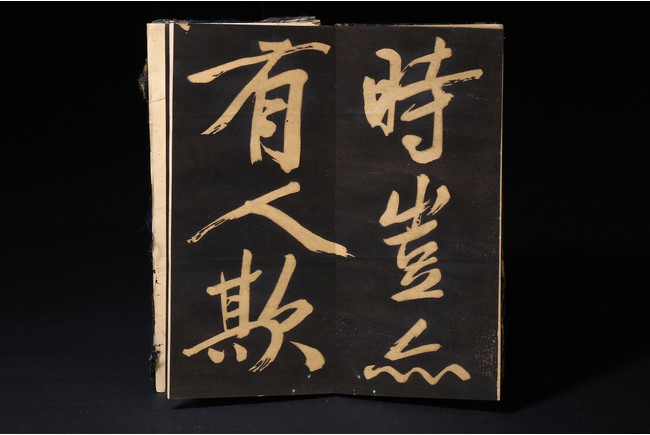 時豈無
有人欺